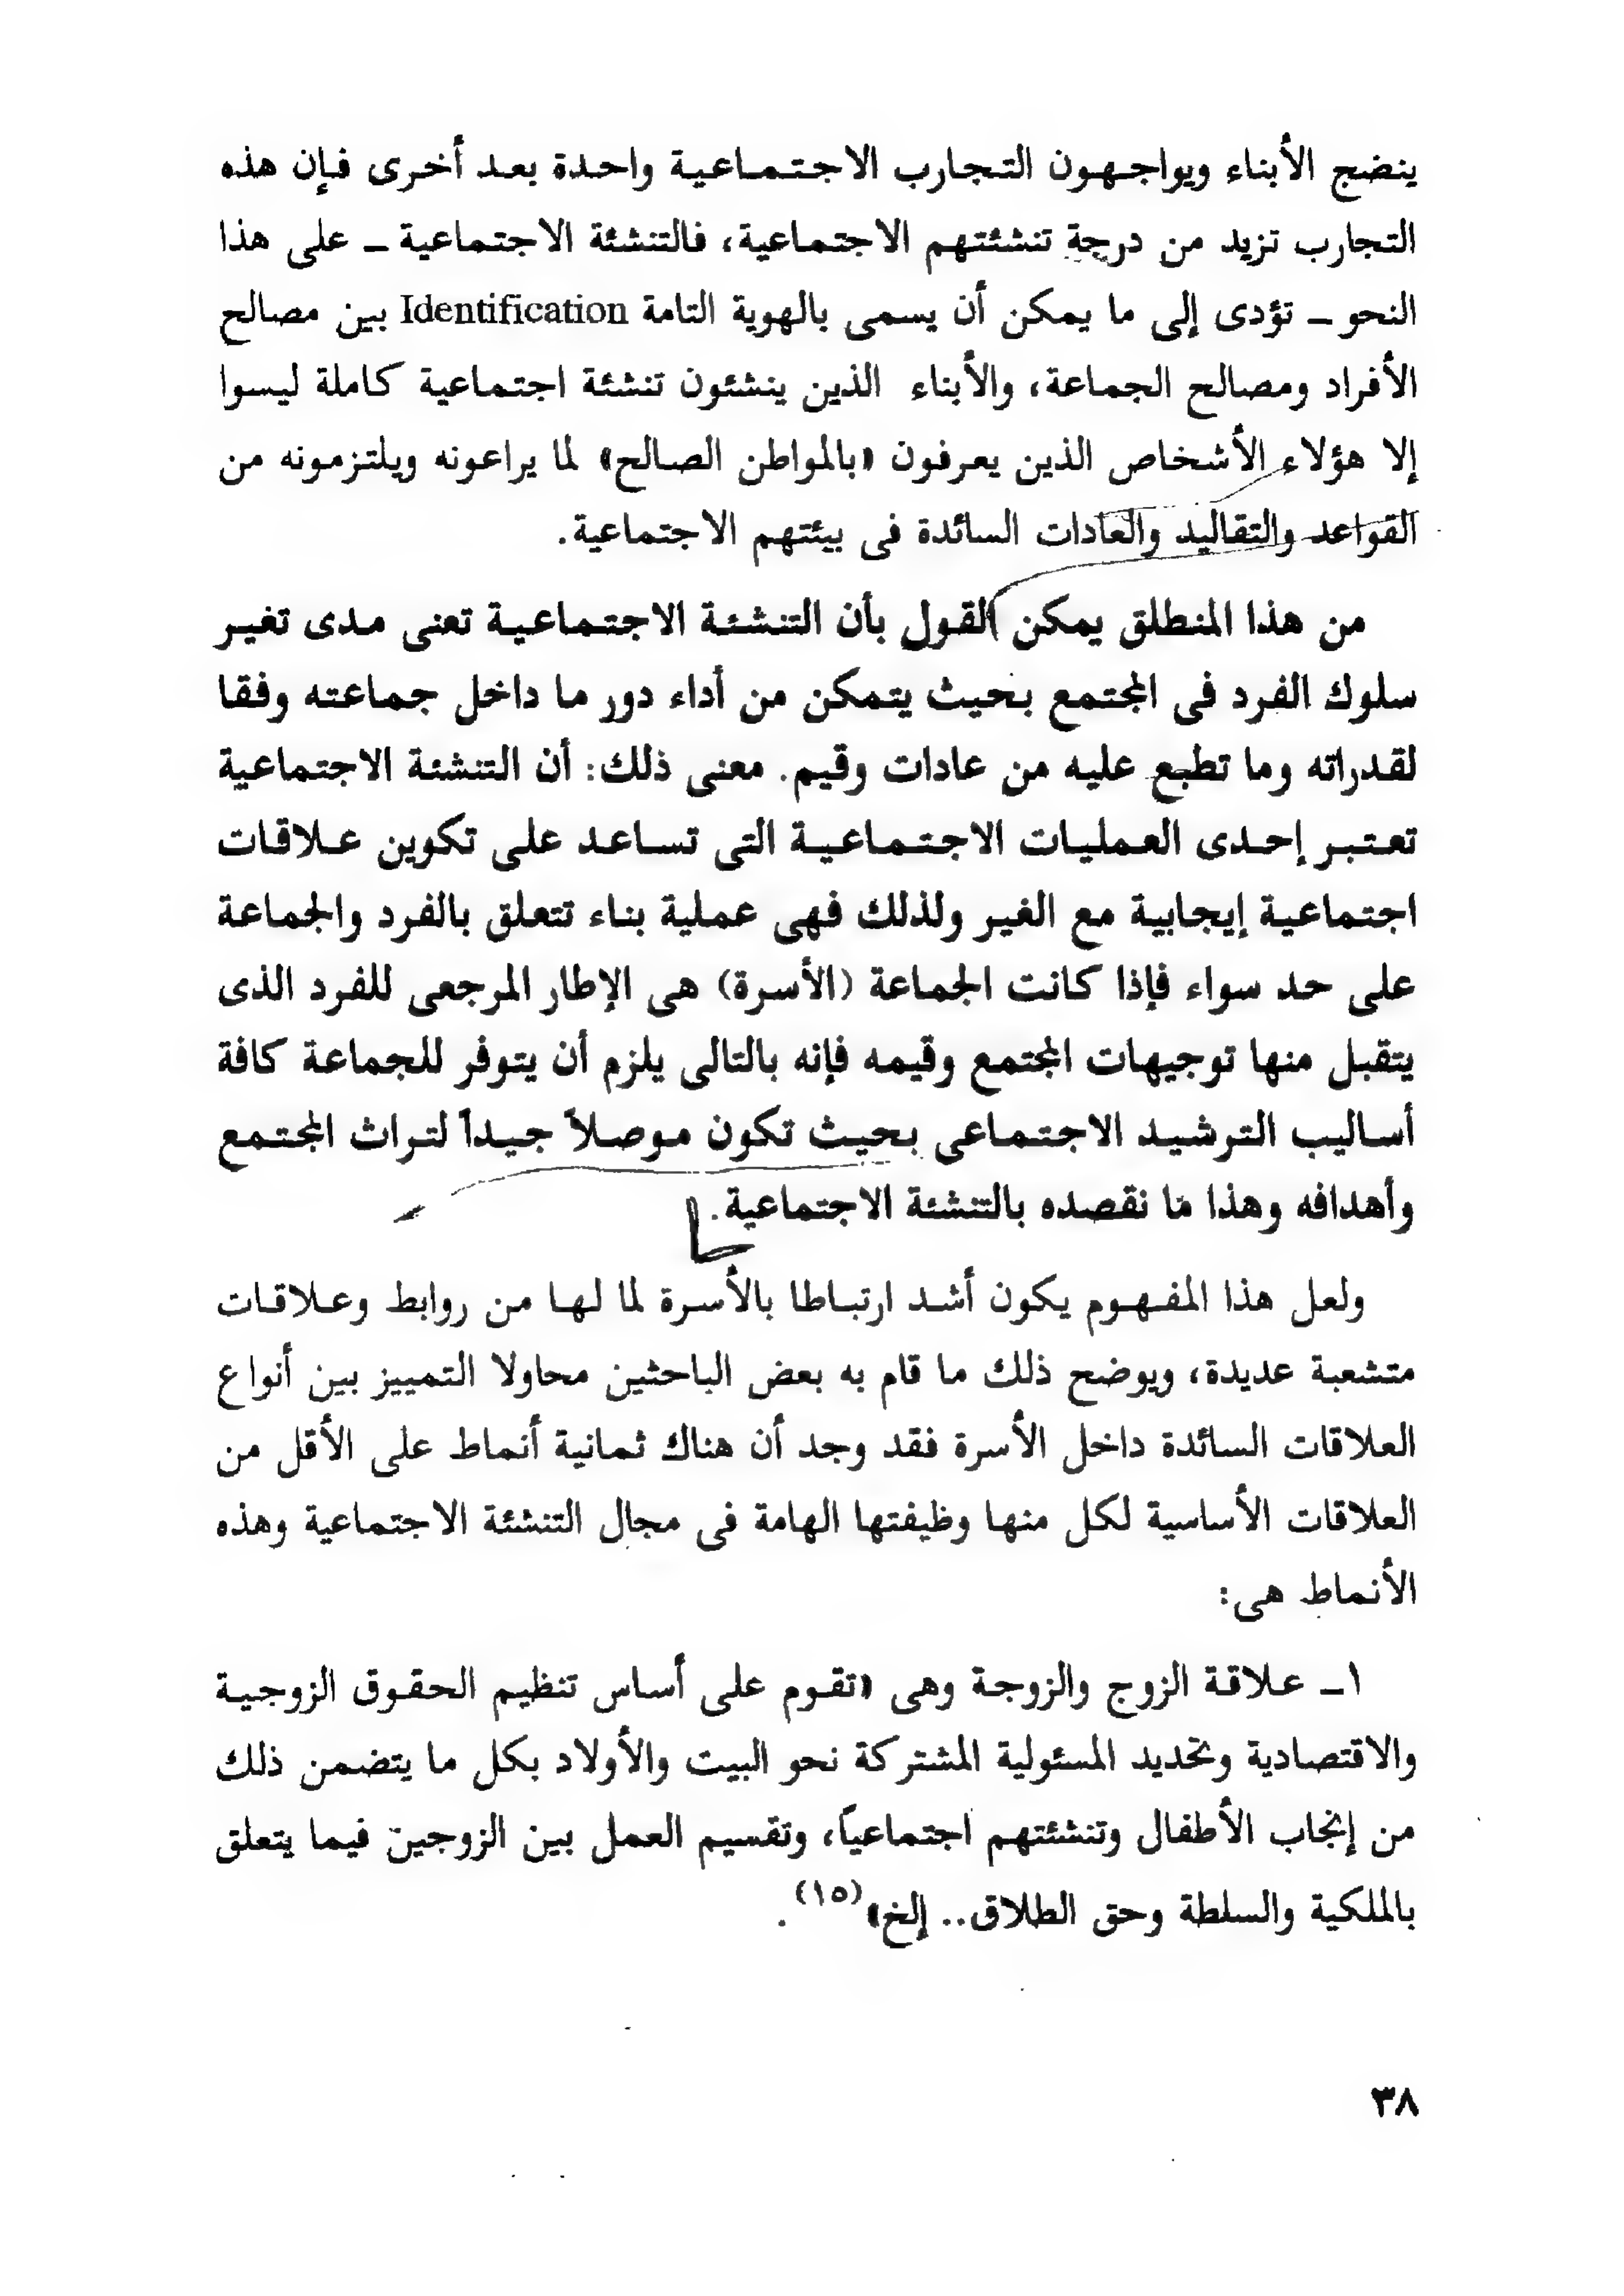 ينضج الأبناء ويواجهون التجارب الاجتماعية واحدة بعد أخرى فإن هذه
التجارب تزيد من درجة تنشئتهم الاجتماعية، فالتنشئة الاجتماعية ـ على هذا
النحو ـ تؤدى إلى ما يمكن أن يسمى بالهوية التامة Identification بين مصالح
الأفراد ومصالح الجماعة، والأبناء الذين ينشئون تنشئة اجتماعية كاملة ليسوا
إلا هؤلاء الأشخاص الذين يعرفون «بالمواطن الصالح» لما يراعونه ويلتزمونه من
القواعد والتقاليد والعادات السائدة فى بيئتهم الاجتماعية.
من هذا المنطلق يمكن القول بأن التنشئة الاجتماعية تعنى مدى تغير
سلوك الفرد فى المجتمع بحيث يتمكن من أداء دور ما داخل جماعته وفقا
لقدراته وما تطبع عليه من عادات وقيم. معنى ذلك: أن التنشئة الاجتماعية
تعتبر إحدى العمليات الاجتماعية التى تساعد على تكوين علاقات
اجتماعية إيجابية مع الغير ولذلك فهى عملية بناء تتعلق بالفرد والجماعة
على حد سواء فإذا كانت الجماعة (الأسرة) هى الإطار المرجعى للفرد الذى
يتقبل منها توجيهات المجتمع وقيمه فإنه بالتالى يلزم أن يتوفر للجماعة كافة
أساليب الترشيد الاجتماعى بحيث تكون موصلاً جيداً لتراث المجتمع
وأهدافه وهذا ما نقصده بالتنشئة الاجتماعية.
ولعل هذا المفهوم يكون أشد ارتباطا بالأسرة لما لها من روابط وعلاقات
متشعبة عديدة، ويوضح ذلك ما قام به بعض الباحثين محاولا التمييز بين أنواع
العلاقات السائدة داخل الأسرة فقد وجد أن هناك ثمانية أنماط على الأقل من
العلاقات الأساسية لكل منها وظيفتها الهامة فى مجال التنشئة الاجتماعية وهذه
الأنماط هى:
١ـ علاقة الزوج والزوجة وهى «تقوم على أساس تنظيم الحقوق الزوجية
والاقتصادية وتحديد المسئولية المشتركة نحو البيت والأولاد بكل ما يتضمن ذلك
من إنجاب الأطفال وتنشئتهم اجتماعياً، وتقسيم العمل بين الزوجين فيما يتعلق
بالملكية والسلطة وحق الطلاق.. إلخ»(١٥).
٣٨